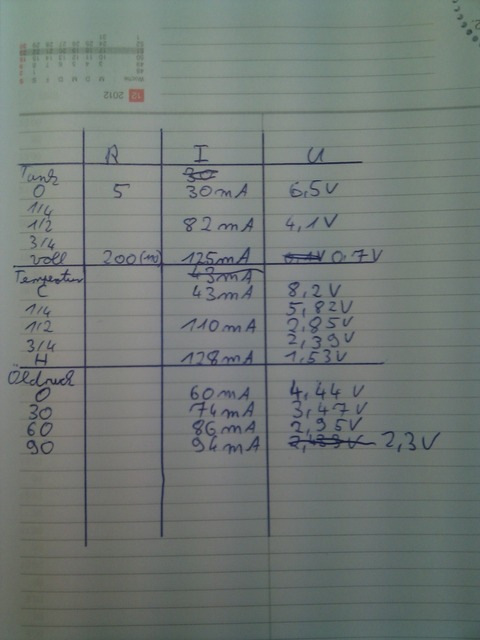 12 2012
R I U
Tank 30
0 5 30mA 6,5V
1/4
1/2 82mA 4,1V
3/4
voll 200(10) 125mA 0,1V 0,7V
Temperatur 43mA
C 43mA 8,2V
1/4 5,82V
1/2 110mA 2,85V
3/4 2,39V
H 128mA 1,53V
Öldruck
0 60mA 4,44V
30 74mA 3,47V
60 86mA 2,95V
90 94mA 2,3V